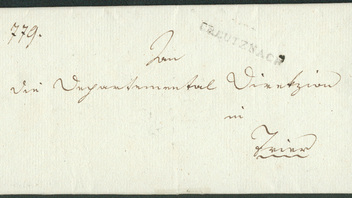 779.
CREUTZNACH
An
die Departemental Direktzion
in
Trier